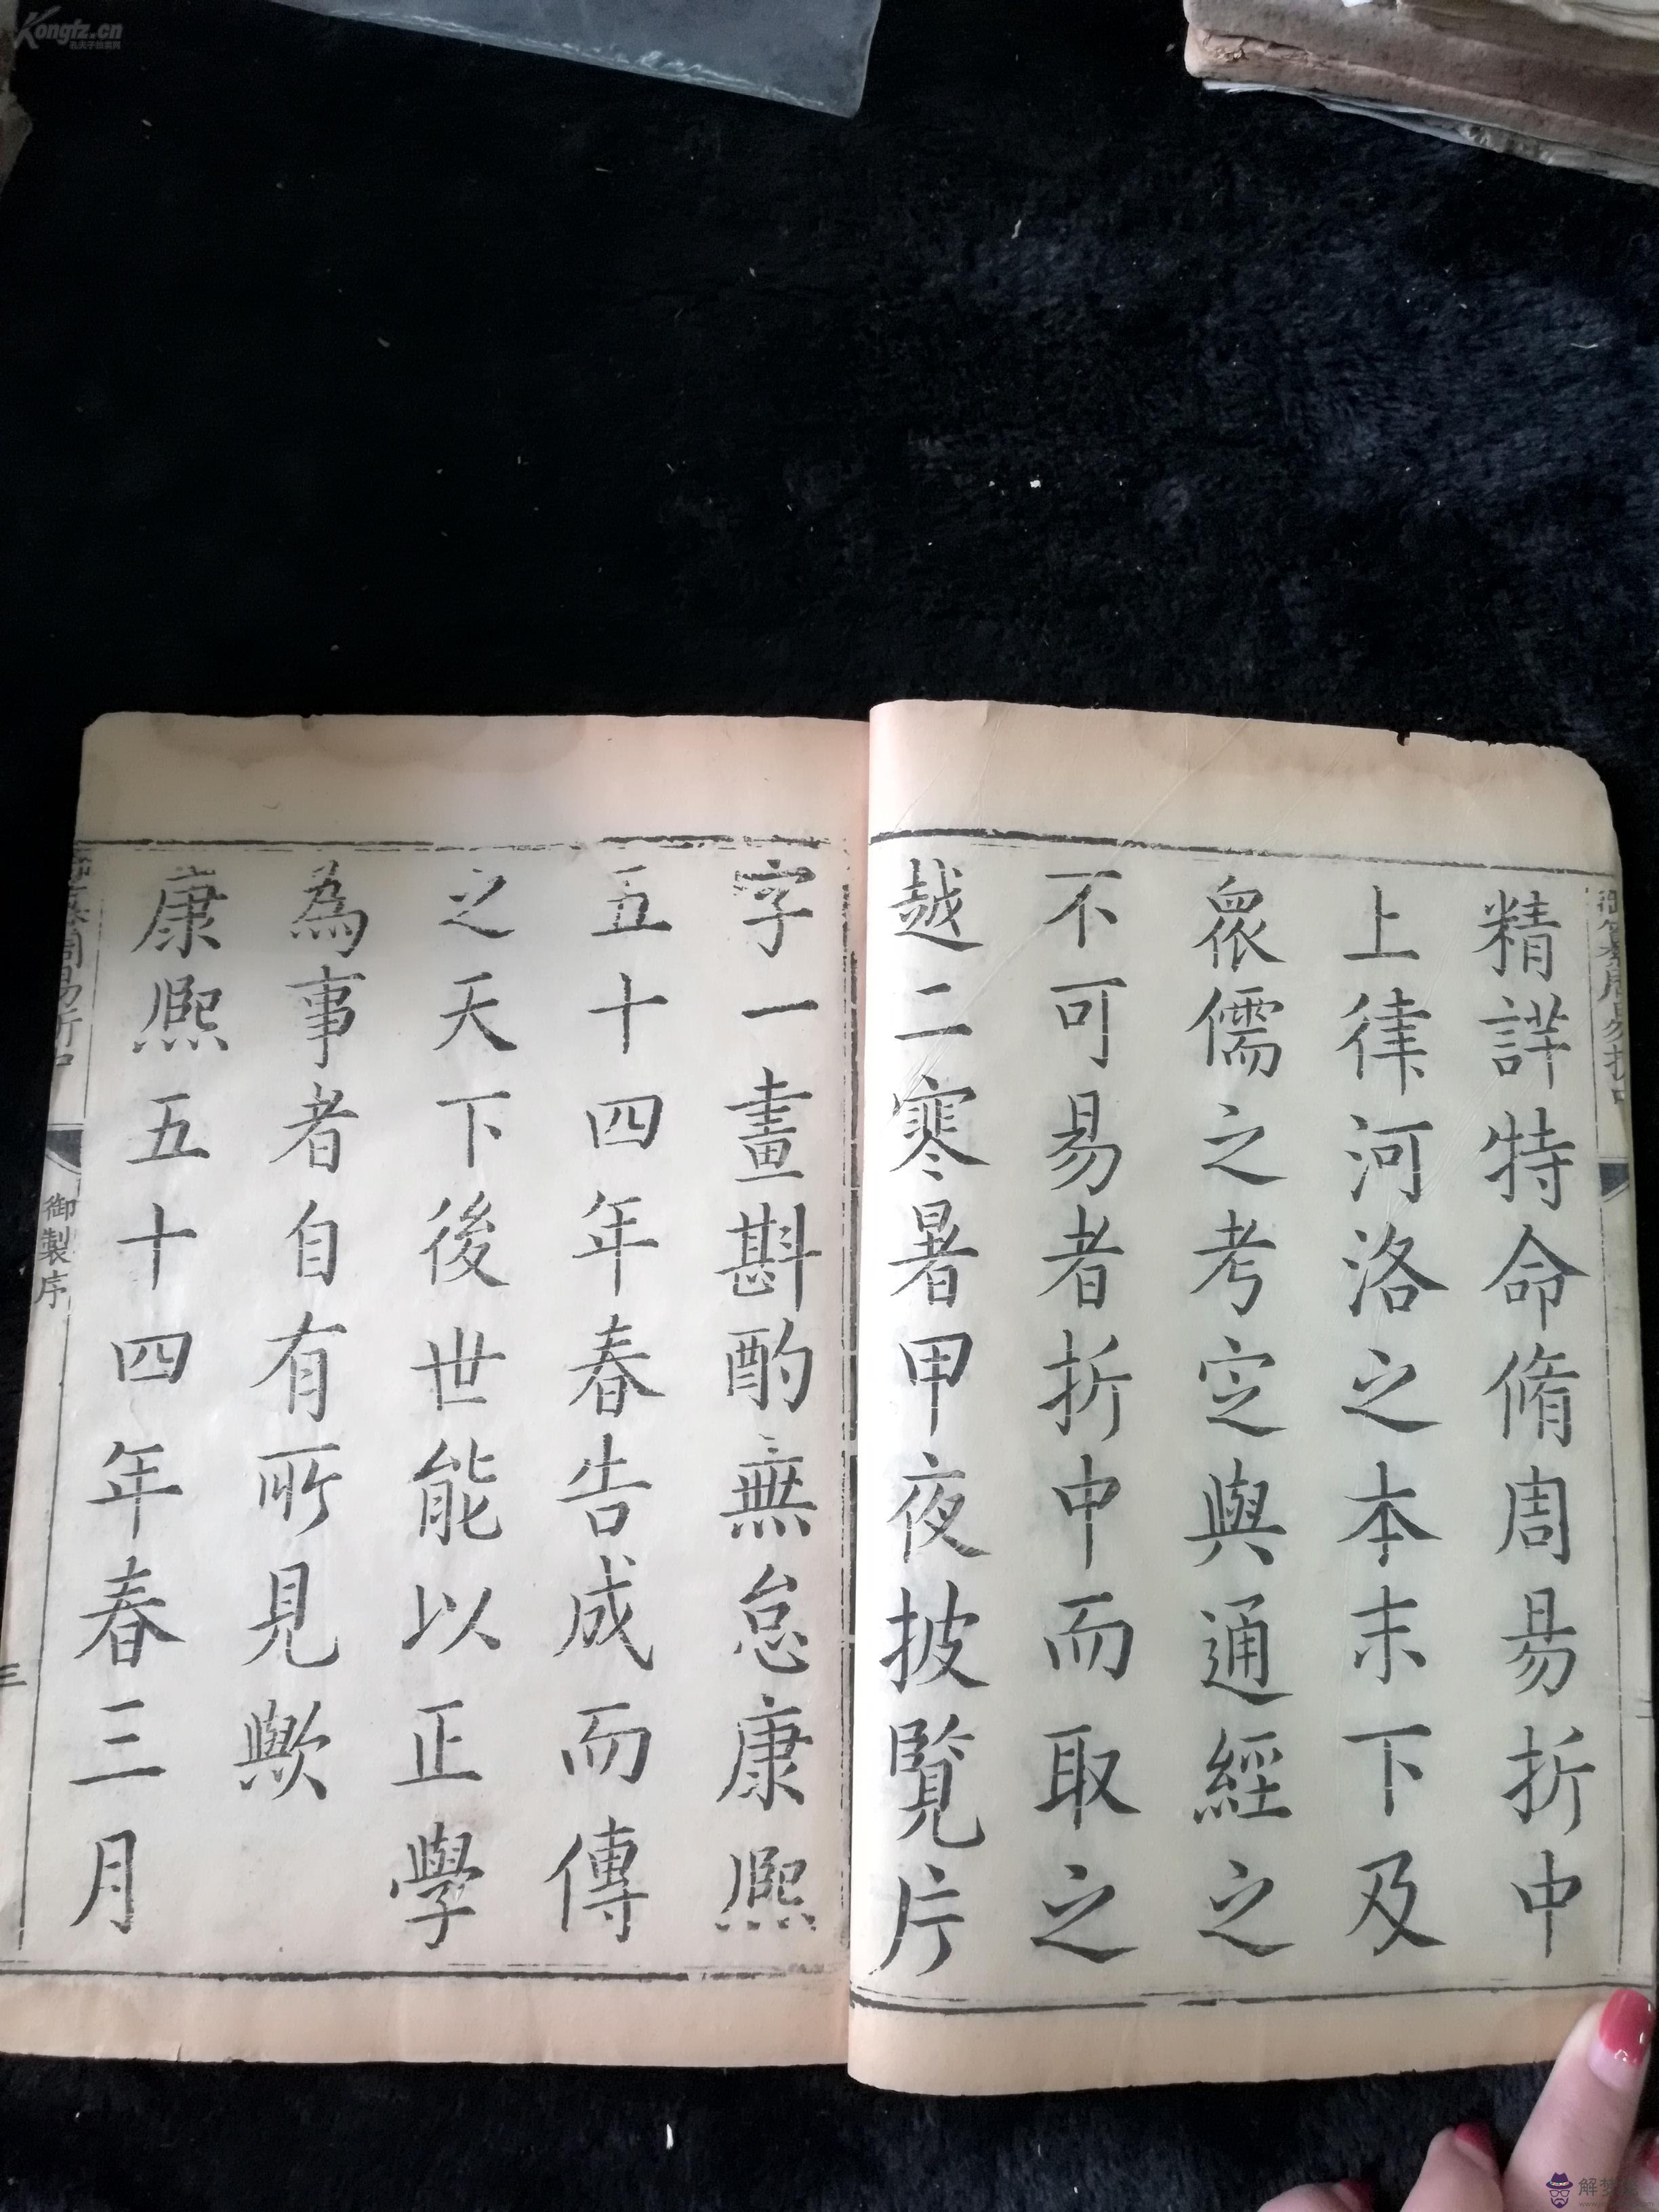 精詳特命脩周易折中
上律河洛之本末下及
眾儒之考定與通經之
不可易者折中而取之
越二寒暑甲夜披覽片
字一畫斟酌無怠康熙
五十四年春告成而傳
之天下後世能以正學
為事者自有所見歟
康熙五十四年春三月
御製序
三
Kongfz.cn